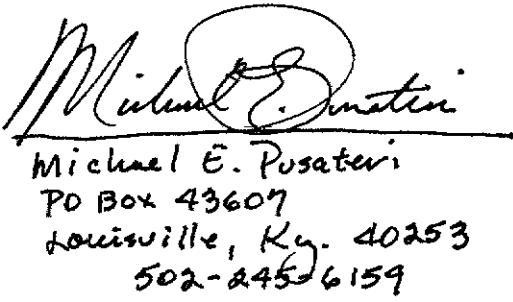 Michael E. Pusateri
Michael E. Pusateri
PO Box 43607
Louisville, Ky. 40253
502-245-6159